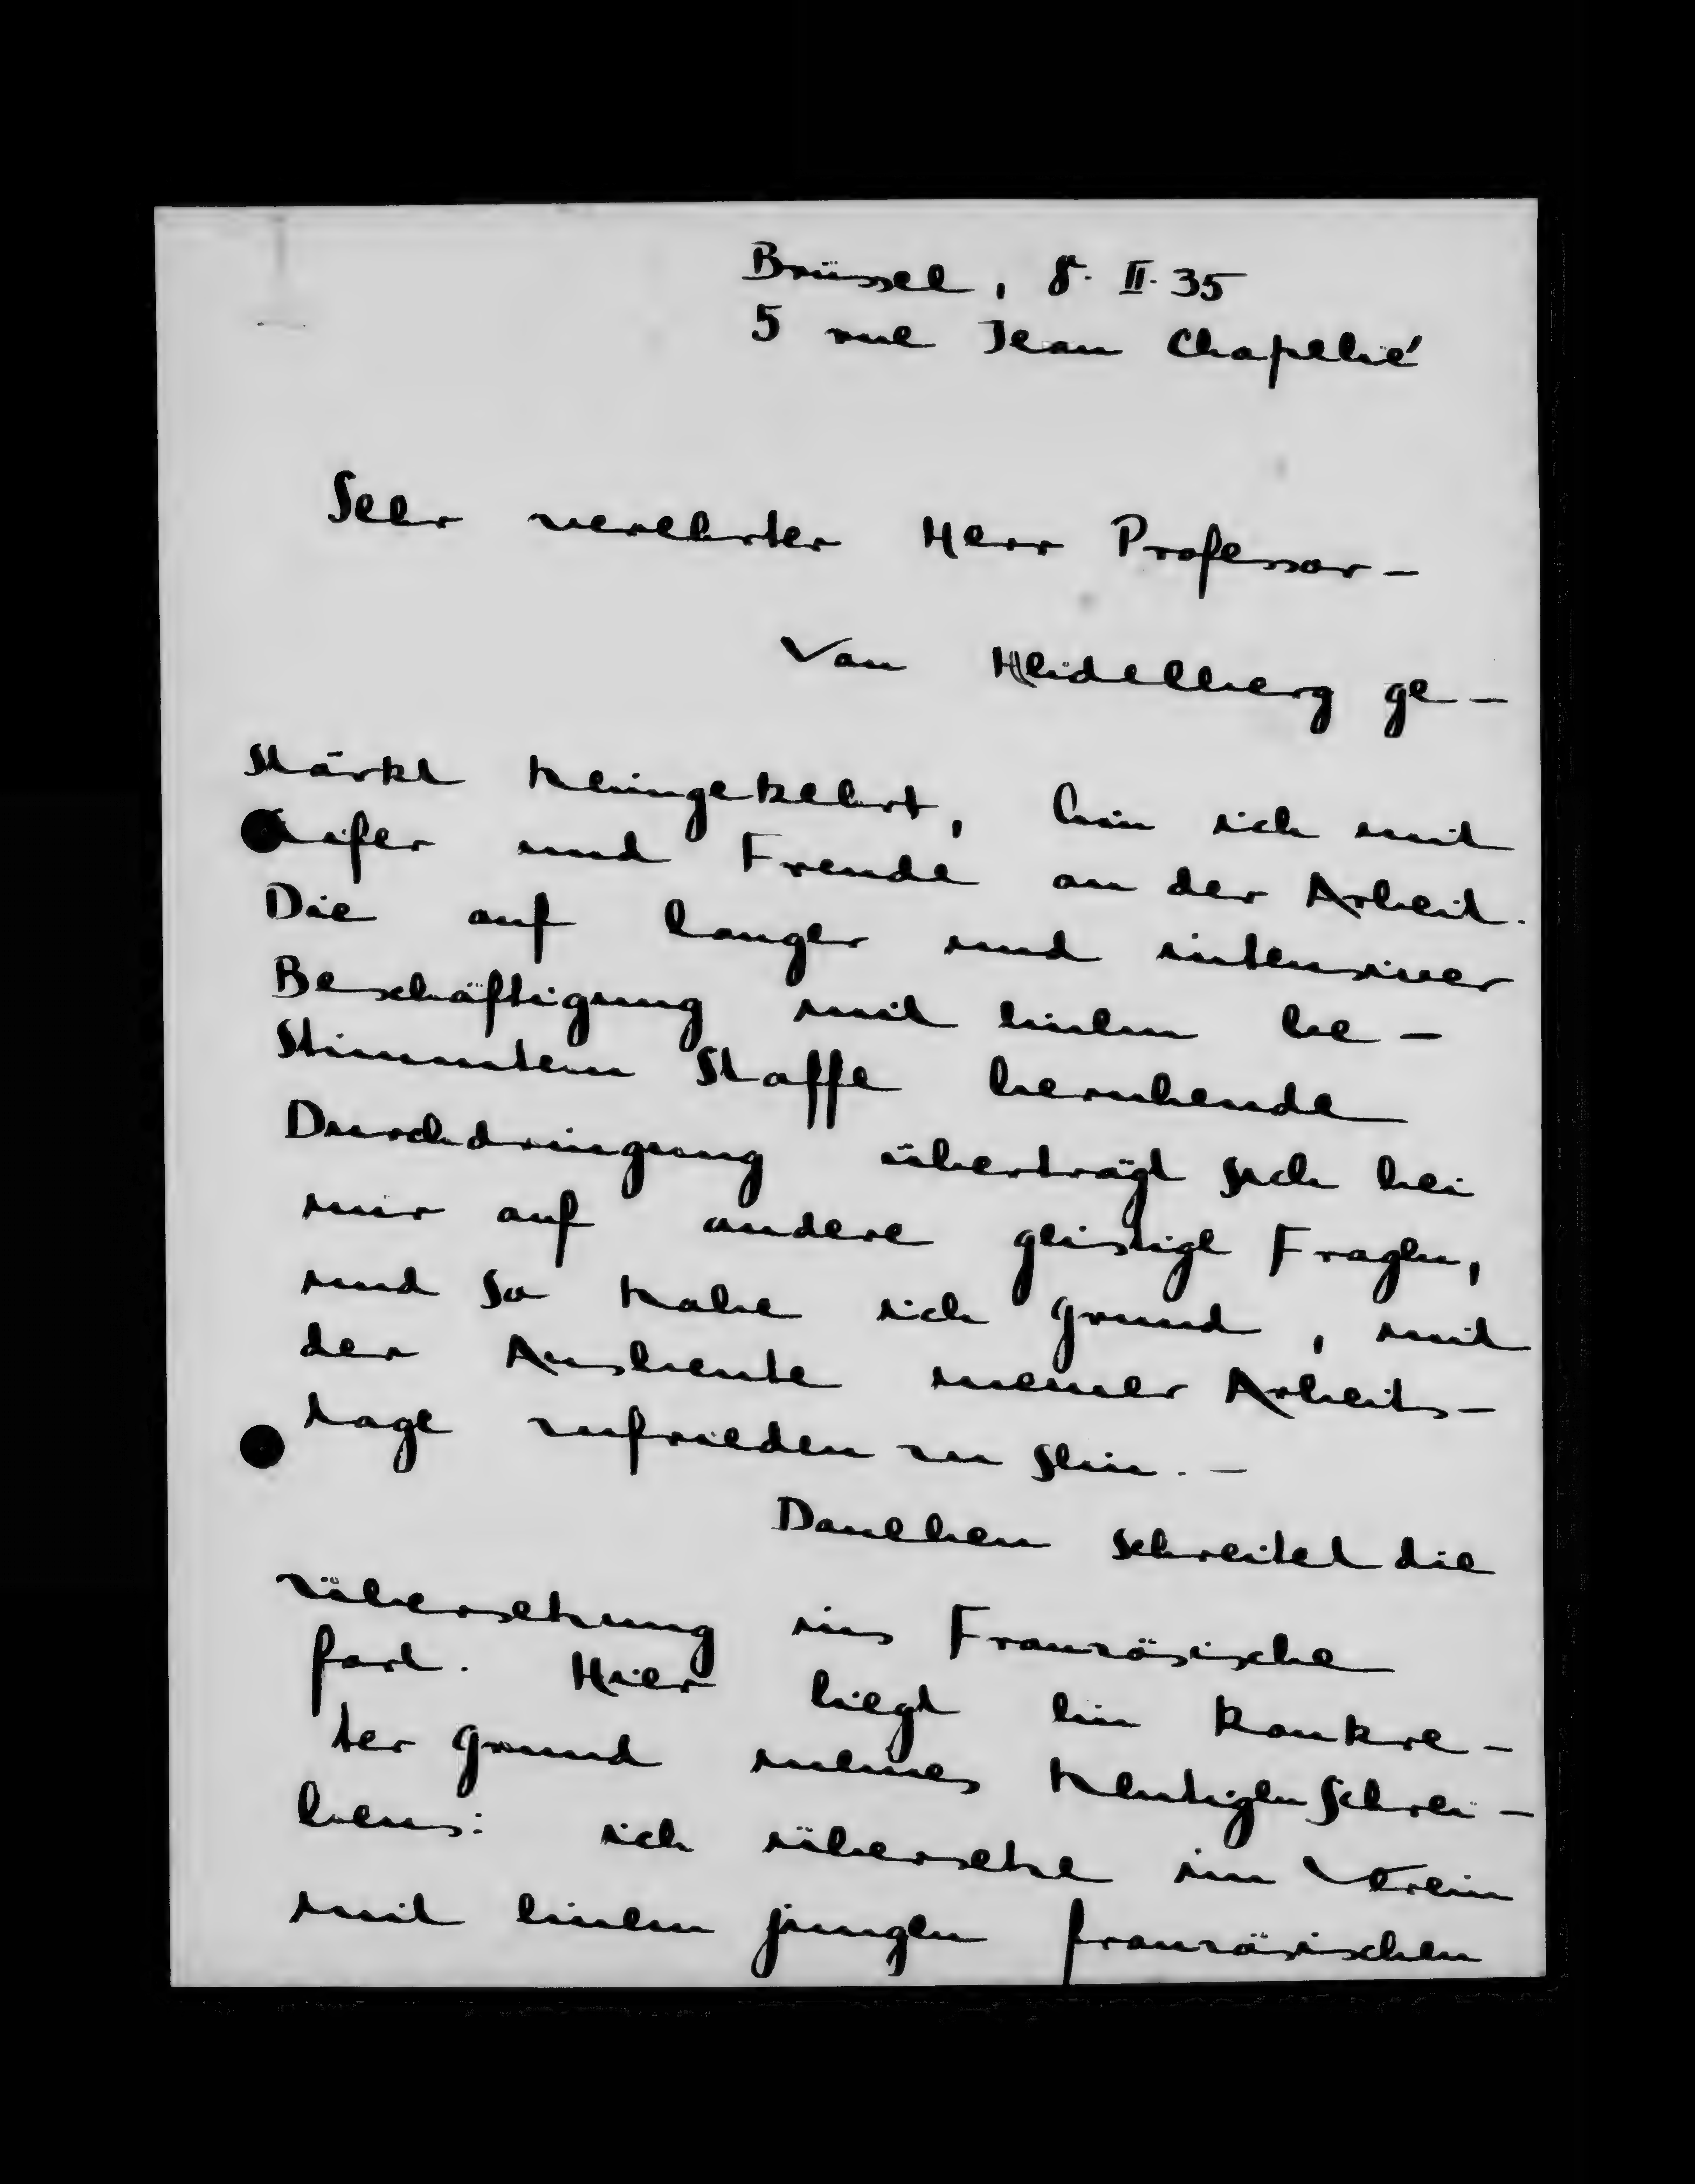 Brüssel, 8. II. 35
5 rue Jean Chapelié
Sehr verehrter Herr Professor –
Von Heidelberg ge-
stärkt heimgekehrt, bin ich mit
Eifer und Freude an der Arbeit.
Die auf langer und intensiver
Beschäftigung mit einem be-
stimmten Stoffe beruhende
Durchdringung überträgt sich bei
mir auf andere geistige Fragen,
und so habe ich Grund, mit
der Ausbeute meiner Arbeits-
tage zufrieden zu sein. –
Daneben schreitet die
Übersetzung ins Französische
fort. Hier liegt ein konkre-
ter Grund meines heutigen Schrei-
bens: ich übersetze im Verein
mit einem jungen französischen